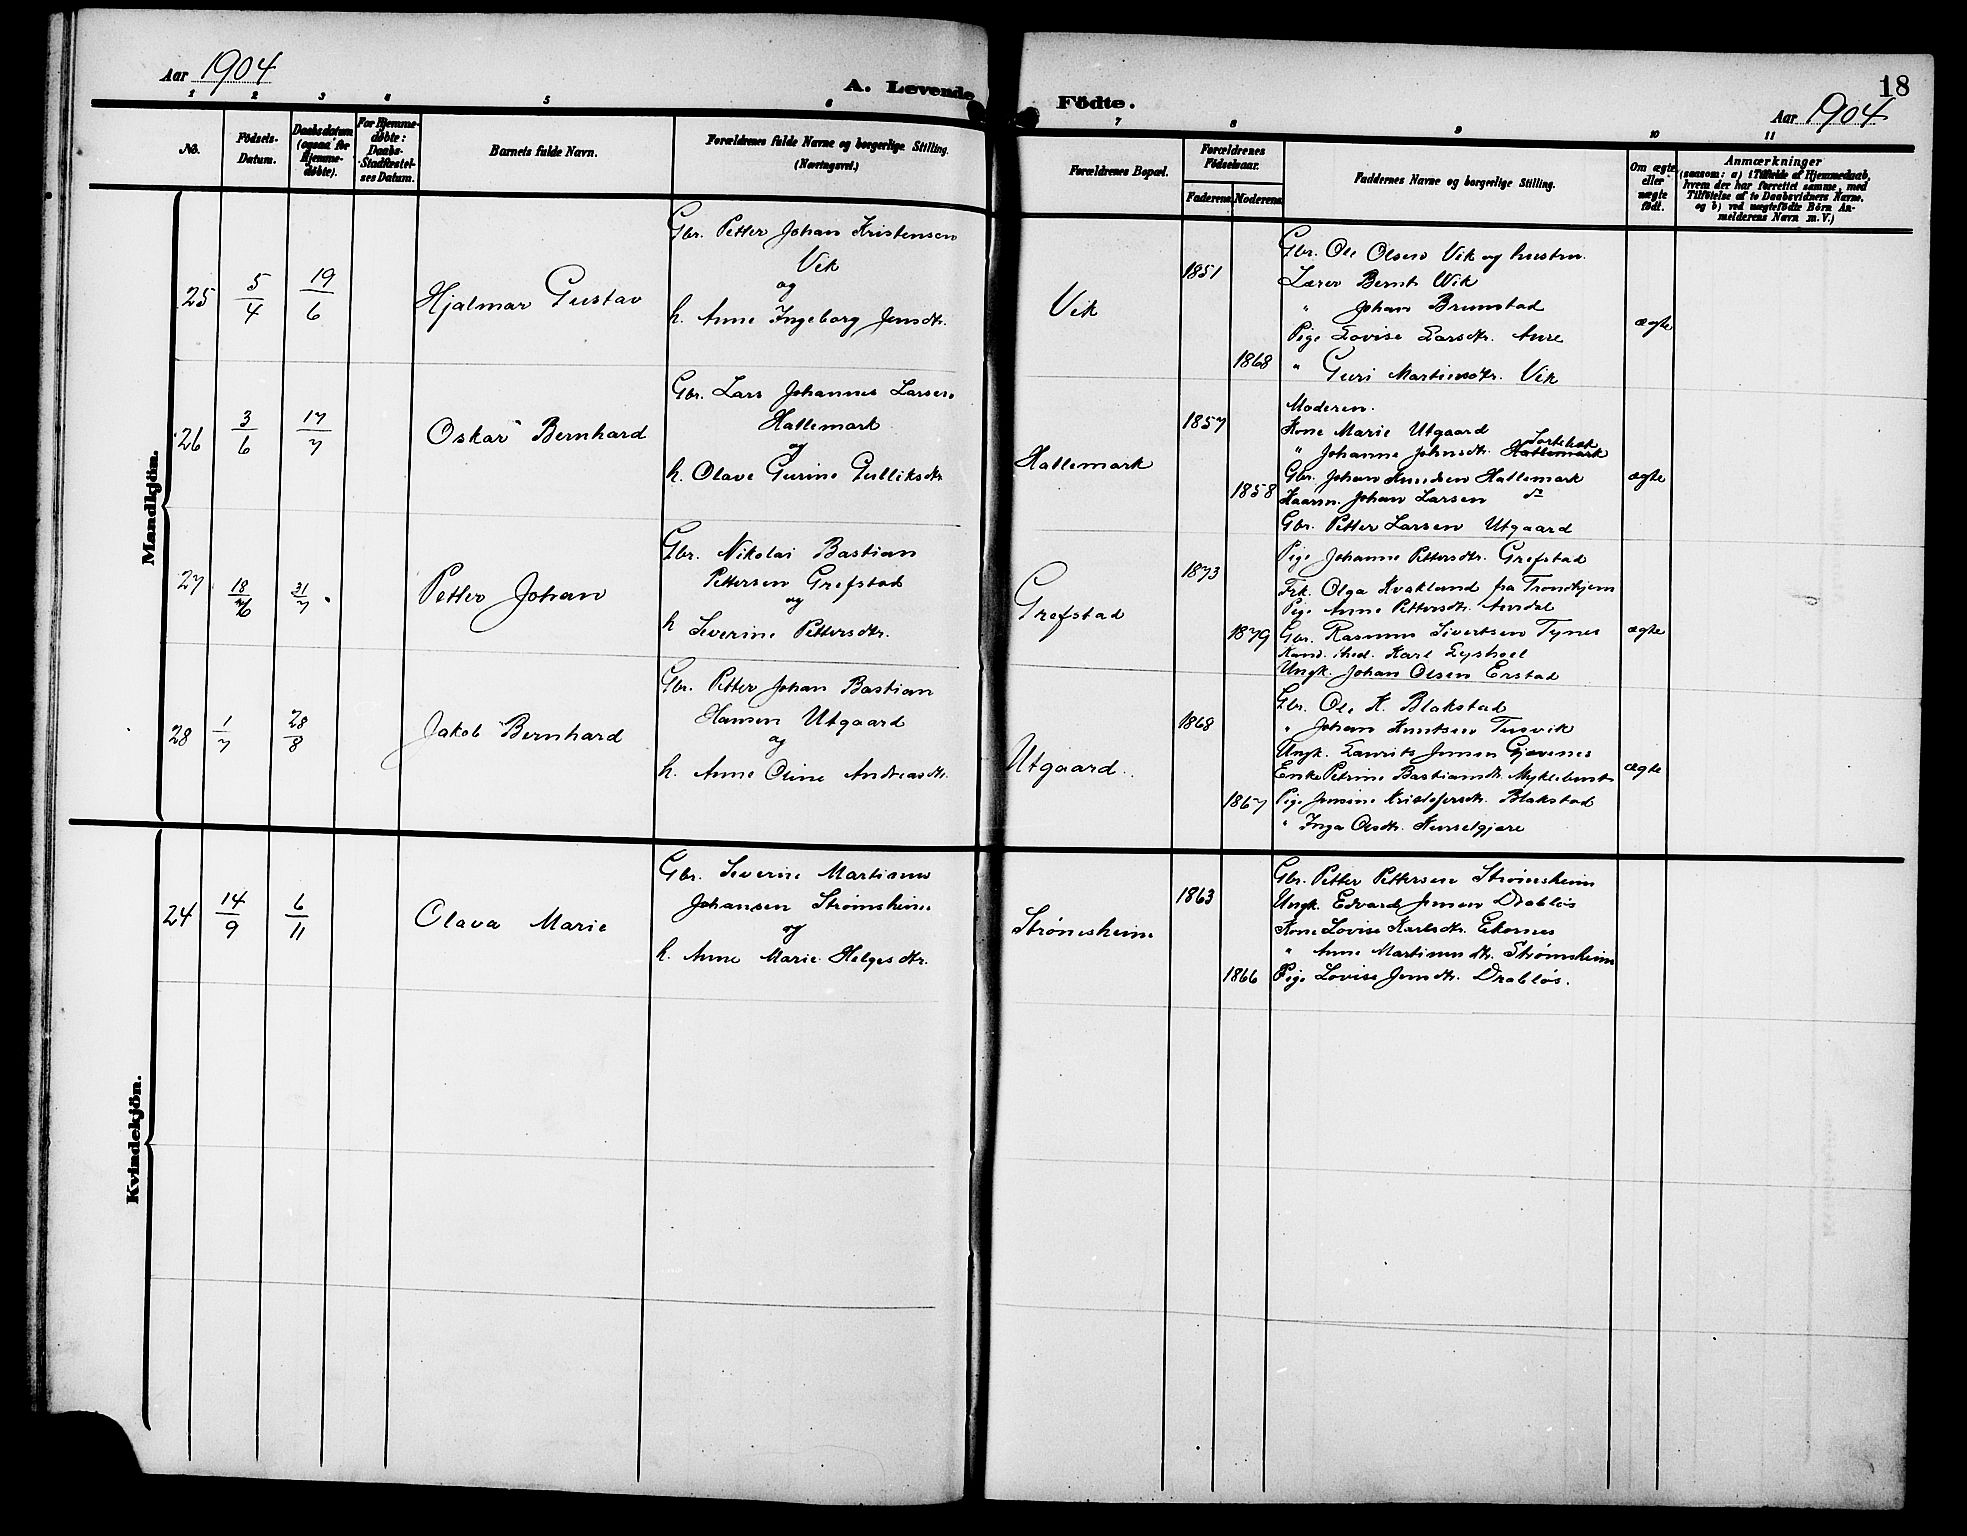 Aar 1904
A. Levende Födte.
18
Aar 1904
1 2 3 4 5 6 7 8 9 10 11
No.
Födsels-Datum.
Daabsdatum (ogsaa for Hjemmedøbte).
For Hjemmedøbte: Daabs-Stadfæstelses Datum.
Barnets fulde Navn.
Forældrenes fulde Navne og borgerlige Stilling. (Næringsvei.)
Forældrenes Bopæl.
Forældrenes Födselsaar.
Faderens Moderens
Faddernes Navne og borgerlige Stilling.
Om ægte eller uægte födt.
Anmærkninger
(saasom: a) i Tilfælde af Hjemmedaab,
hvem der har forrettet samme, med
Tilföielse af to Daabsvidners Navne,
og b) ved uægtefödte Börn An-
melderens Navn m. V.)
Mandkjön.
25
5/4
19/6
Hjalmar Gustav
Gbr. Petter Johan Kristensen
Vik
og
h. Anne Ingeborg Jensdtr.
Vik
1851
1868
Gbr. Ole Olsen Vik og hustru
Lærer Bernt Vik
" Johan Brunstad
Pige Lovise Larsdtr. Aure
" Guri Martinsdtr. Vik
ægte
26
3/6
17/7
Oskar Bernhard
Gbr. Lars Johannes Larsen
Hattemark
og
h. Olave Gurine Gulliksdtr
Hattemark
1857
1858
Moderen.
Kone Marie Utgaard
" Johanne Johnsdtr. Hattemark
Gbr. Johan Knudsen Hattemark
Johan Larsen do
Gbr. Petter Larsen Utgaard
ægte
27
18/6
31/7
Petter Johan
Gbr. Nikolai Bastian
Pettersen Grefstad
og
h Severine Pettersdtr.
Grefstad
1873
1879
Pige Johanne Pettersdtr. Grefstad
Frk. Olga Kvakland fra Trondhjem
Pige Anne Pettersdtr. Aursdal
Gbr. Rasmus Sivertsen Tynes
Kand. theol. Karl
Ungk. Johan Olsen Erstad
ægte
28
1/7
28/8
Jakob Bernhard
Gbr. Petter Johan Bastian
Hansen Utgaard
og
h. Anne Oline Andreasdtr.
Utgaard
1868
1867
Gbr. Ole K. Blakstad
" Johan Knutsen Tusvik
Ungk. Laurits Jensen Gjævenes
Enke Petrine Bastiansdtr. Myklebust
Pige Jensine Kristofersdtr. Blakstad
" Inga Olsdtr.
ægte
Kvindekjön.
24
14/9
6/11
Olava Marie
Gbr. Severin Martinus
Johansen Strømsheim
og
h. Anne Marie Helgesdtr.
Strømsheim
1863
1866
Gbr. Petter Pettersen Strømsheim
Ungk. Edvard Jensen Drabløs
Kone Lovise Karlsdtr. Ekornes
" Anne Martinusdtr. Strømsheim
Pige Lovise Jensdtr. Drabløs.